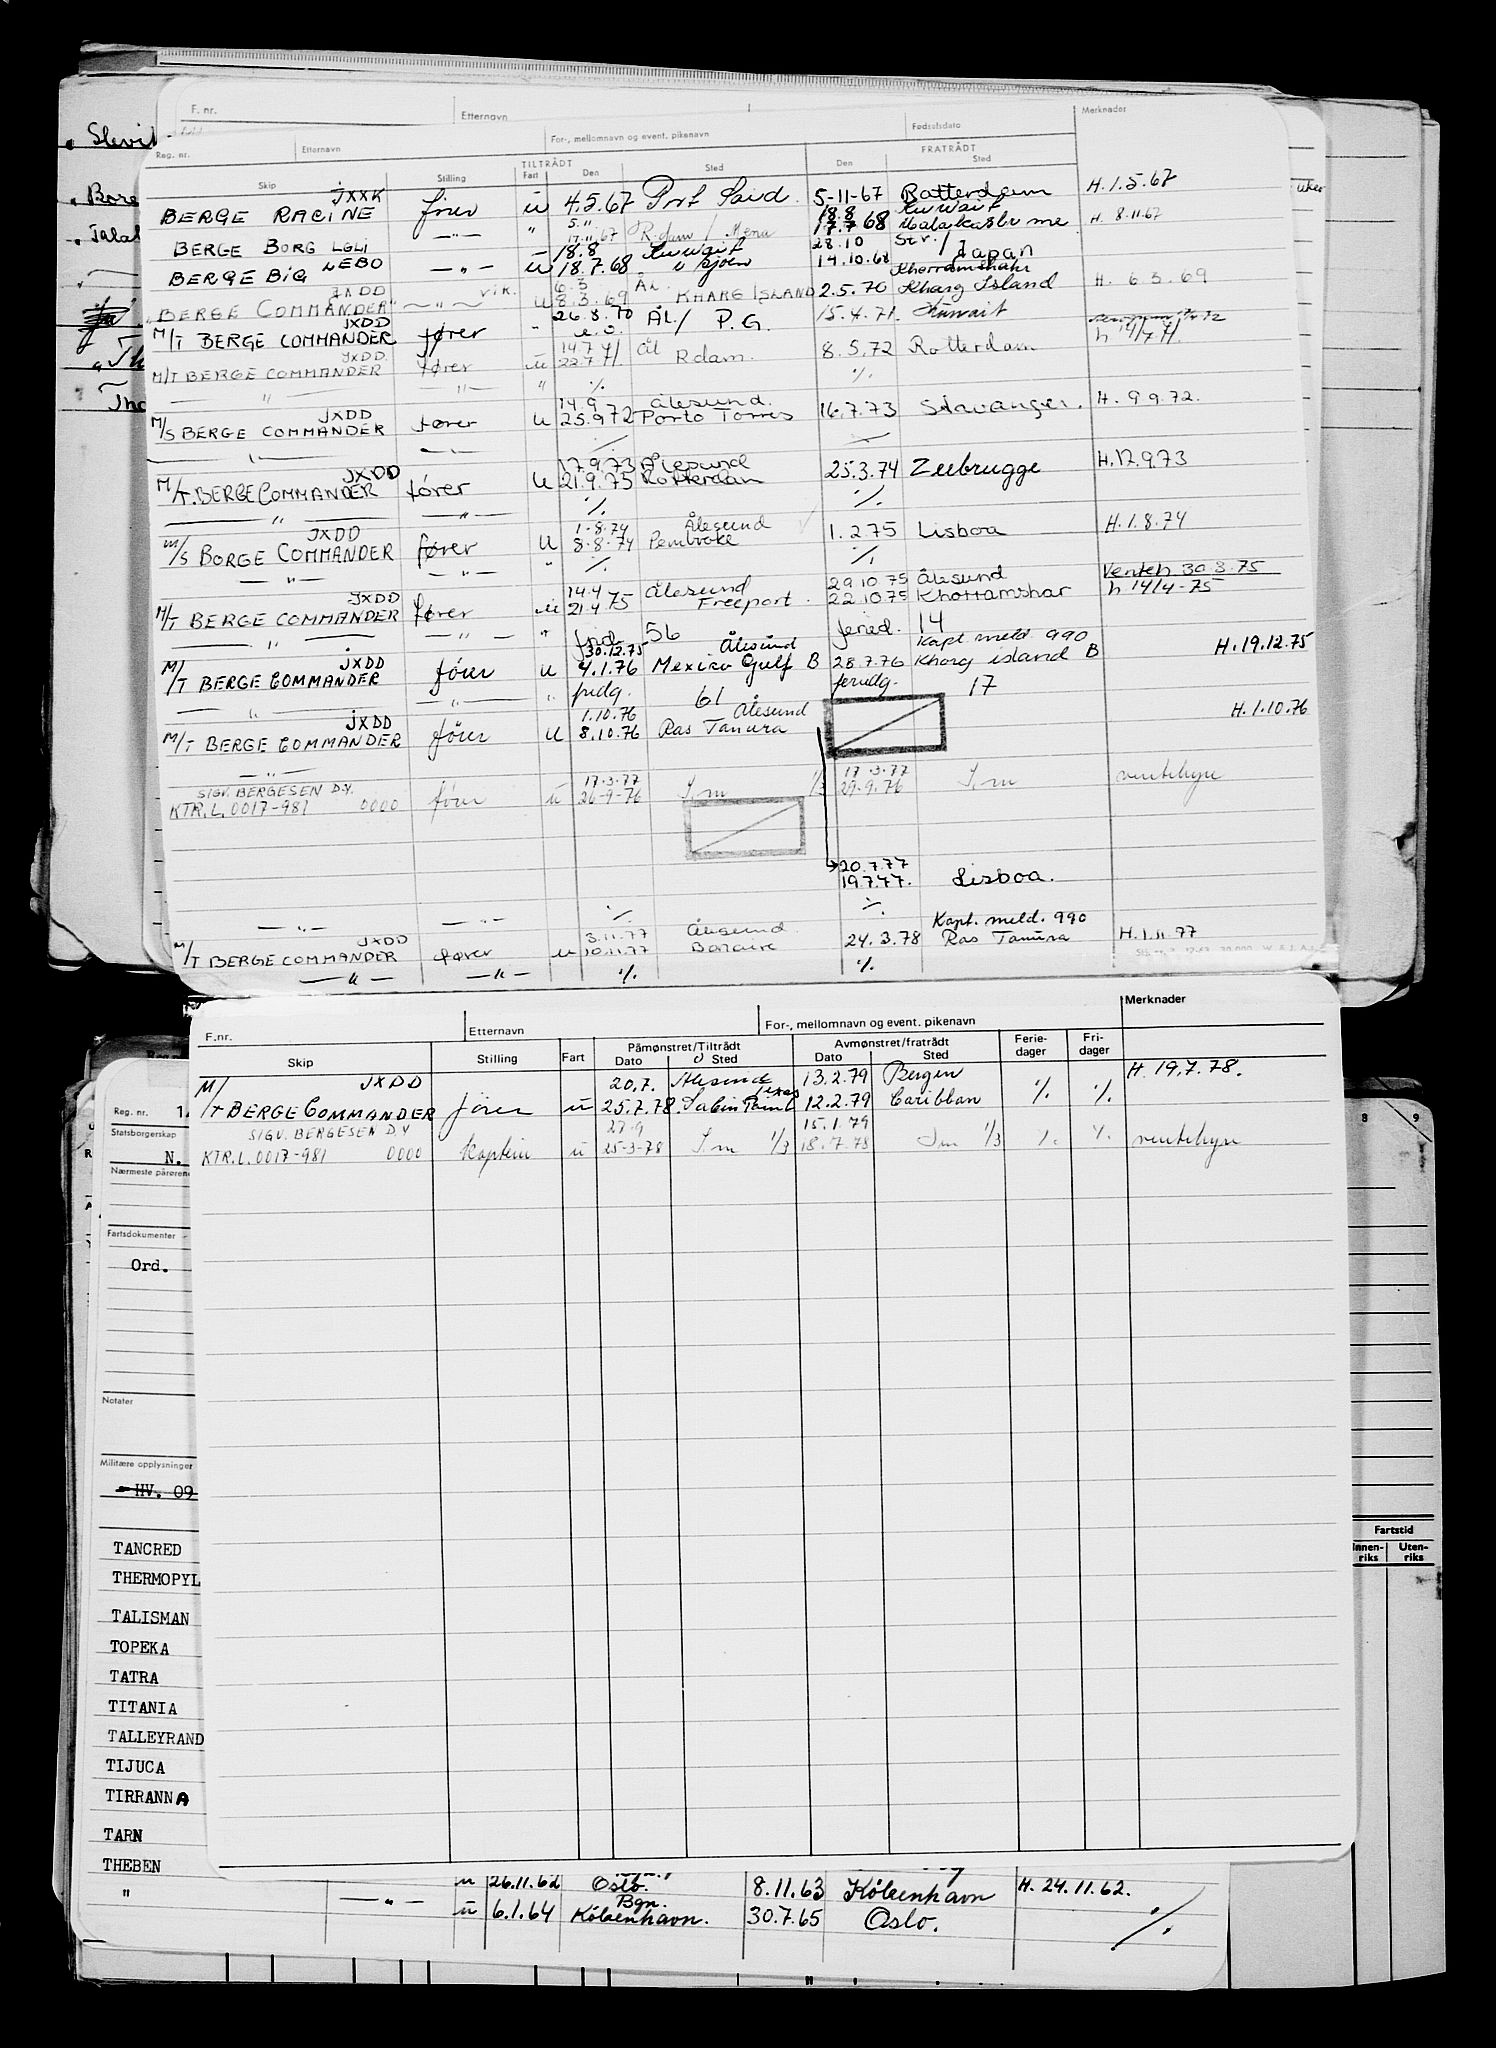 F. nr.
Etternavn
Merknader
For-, mellomnavn og event. pikenavn
Fødselsdato
Reg. nr.
Etternavn
TILTRÅDT
FRATRÅDT
Skip
Stilling
Fart
Den
Sted
Den
Sted
JXXK
BERGE RACINE fører u 4.5.67 Port Said 5-11-67 Rotterdam H. 1.5.67
BERGE BORG LGLI — " — " 5.11 17.11.67 R.dam / Mena 18.8 17.7 68 Kuwait H. 8.11.67
BERGE BIG LEBO — " — u 18.8 18.7.68 Kuwait 28.10 14.10.68 Str. / Japan
JXDD
"BERGE COMMANDER" — " — vik. u 6.3 8.3.69 Ål. KHARG ISLAND 2.5.70 Khorramshahr Kharg Island H. 6 3. 69
JXDD
M/T BERGE COMMANDER fører " 26.8.70 e.o. ÅL / P.G. 15.4.71. Kuwait
JXDD
M/T BERGE COMMANDER fører u 14.7 71 22.7.71. Ål R.dam. 8.5.72 Rotterdam h 14/7 71.
" " — " ./. ./.
JXDD
M/S BERGE COMMANDER fører u 14.9 25.9 72 Ålesund. Porto Torres 16.7.73 Stavanger. H. 9 9.72.
" — " — ./. ./.
JXDD
M/T. BERGE COMMANDER fører u 17.9.73 21.9.75 Ålesund Rotterdam 25.3.74 Zeebrugge H. 17.9.73
" — " — ./. ./.
JXDD
M/S BORGE COMMANDER fører u 1.8.74 8.8.74 Ålesund Pembroke 1.2.75 Lisboa H. 1.8.74
— " — — " — " ./. ./.
Venteh 30.8.75
JXDD
M/T BERGE COMMANDER fører u 14.4 21.4 75 Ålesund Freeport. 29.10.75 22.10.75 Ålesund Khorramshar h 14/4-75
" — " — " frid. 56 feried. 14
Kapt meld. 990
JXDD
M/T BERGE COMMANDER fører u 30.12.75 4.1.76 Ålesund Mexico Gulf B 28.7.76 Kharg island B H. 19.12.75
" — " — " fridg. 61 feriedg. 17
JXDD
M/T BERGE COMMANDER fører u 1.10.76 8.10.76 Ålesund Ras Tanura H. 1.10.76
— " —
SIGV. BERGESEN D.Y.
KTR.L. 0017-981 0000 fører u 17.3.77 26-9-76 S.m 1/3 17.3.77 29.9.76 S.m ventehyre
20.7.77
19.7.77. Lisboa.
— " — — " — ./. ./.
Kapt. meld. 990
JXDD
M/T BERGE COMMANDER fører u 3.11.77 10.11.77 Ålesund Bonaire 24.3.78 Ras Tanura H. 1.11.77
— " — — " — ./. ./.
F.nr.
Etternavn
For-, mellomnavn og event. pikenavn
Merknader
Skip
Stilling
Fart
Påmønstret/Tiltrådt
Dato
Sted
Avmønstret/fratrådt
Dato
Sted
Feriedager
Fridager
JXDD
M/T BERGE COMMANDER fører u 20.7. 25.7.78 Ålesund 13.2.79 12.2.79 Bergen Caribban ./. ./. H. 19.7.78.
SIGV. BERGESEN D.Y
KTR.L. 0017-981 0000 Kaptein u 27.9 25-3-78 S.m 1/3 15.1.79 18.7.78 S.m 1/3 ./. ./. ventehyre
Reg. nr.
Statsborgerskap
N.
Nærmeste pårørende
Fartsdokumenter
Ord.
Notater
Militære opplysninger
HV. 09
TANCRED
THERMOPYL
TALISMAN
TOPEKA
TATRA
TITANIA
TALLEYRAND
TIJUCA
TIRRANNA
TARN
THEBEN
u 26.11.62 Oslo. 8.11.63 København H. 24.11.62.
" — " — u 6.1.64 Bgn. København. 30.7.65 Oslo. ./.
8
9
Fartstid
Innenriks
Utenriks